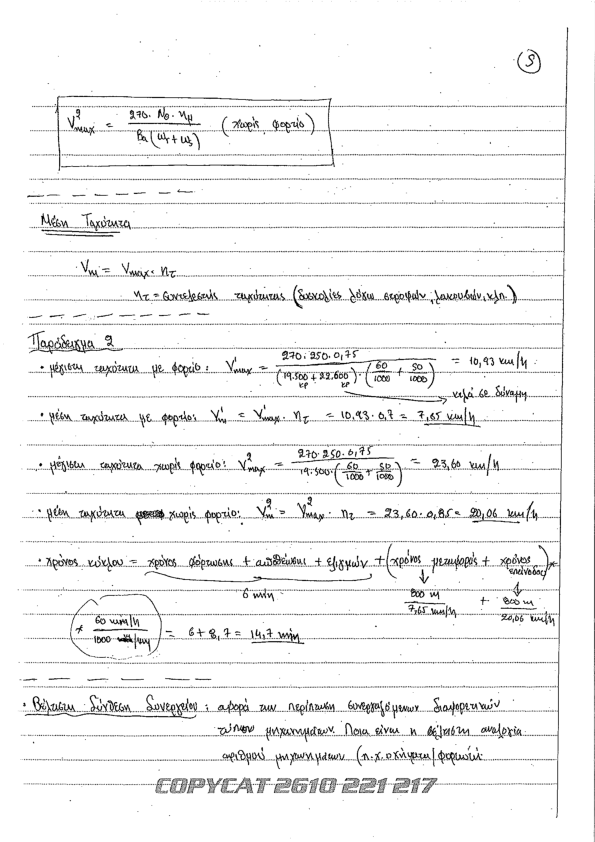 9
V²max = 270 · N₀ · ημ / Βα (ωr + ωs) (χωρίς φορτίο)
Μέση Ταχύτητα
Vm = Vmax · ητ
ητ = συντελεστής ταχύτητας (δυσκολίες λόγω στροφών, λακουβών, κλπ.)
Παράδειγμα 2
• μέγιστη ταχύτητα με φορτίο: V'max = 270 · 250 · 0,75 / (19.500 kp + 22.600 kp) · (60/1000 + 50/1000) = 10,93 km/h
κιλά σε δύναμη
• μέση ταχύτητα με φορτίο: V'm = V'max · ητ = 10,93 · 0,7 = 7,65 km/h
• μέγιστη ταχύτητα χωρίς φορτίο: V²max = 270 · 250 · 0,75 / 19.500 · (60/1000 + 50/1000) = 23,60 km/h
• μέση ταχύτητα χωρίς φορτίο: V²m = V²max · ητ = 23,60 · 0,85 = 20,06 km/h
• χρόνος κύκλου = χρόνος φόρτωσης + αποθέωσης + ελιγμών + (χρόνος μεταφοράς + χρόνος επανόδου) *
6 min
800 m / 7,65 km/h + 800 m / 20,06 km/h
* 60 / 1000 = 6 + 8,7 = 14,7 min
• Βέλτιστη Σύνθεση Συνεργείου: αφορά την περίπτωση συνεργαζόμενων διαφορετικών
τύπων μηχανημάτων. Ποια είναι η βέλτιστη αναλογία
αριθμού μηχανημάτων (π.χ. οχήματα/φορτωτή
COPYCAT 2610 221 217